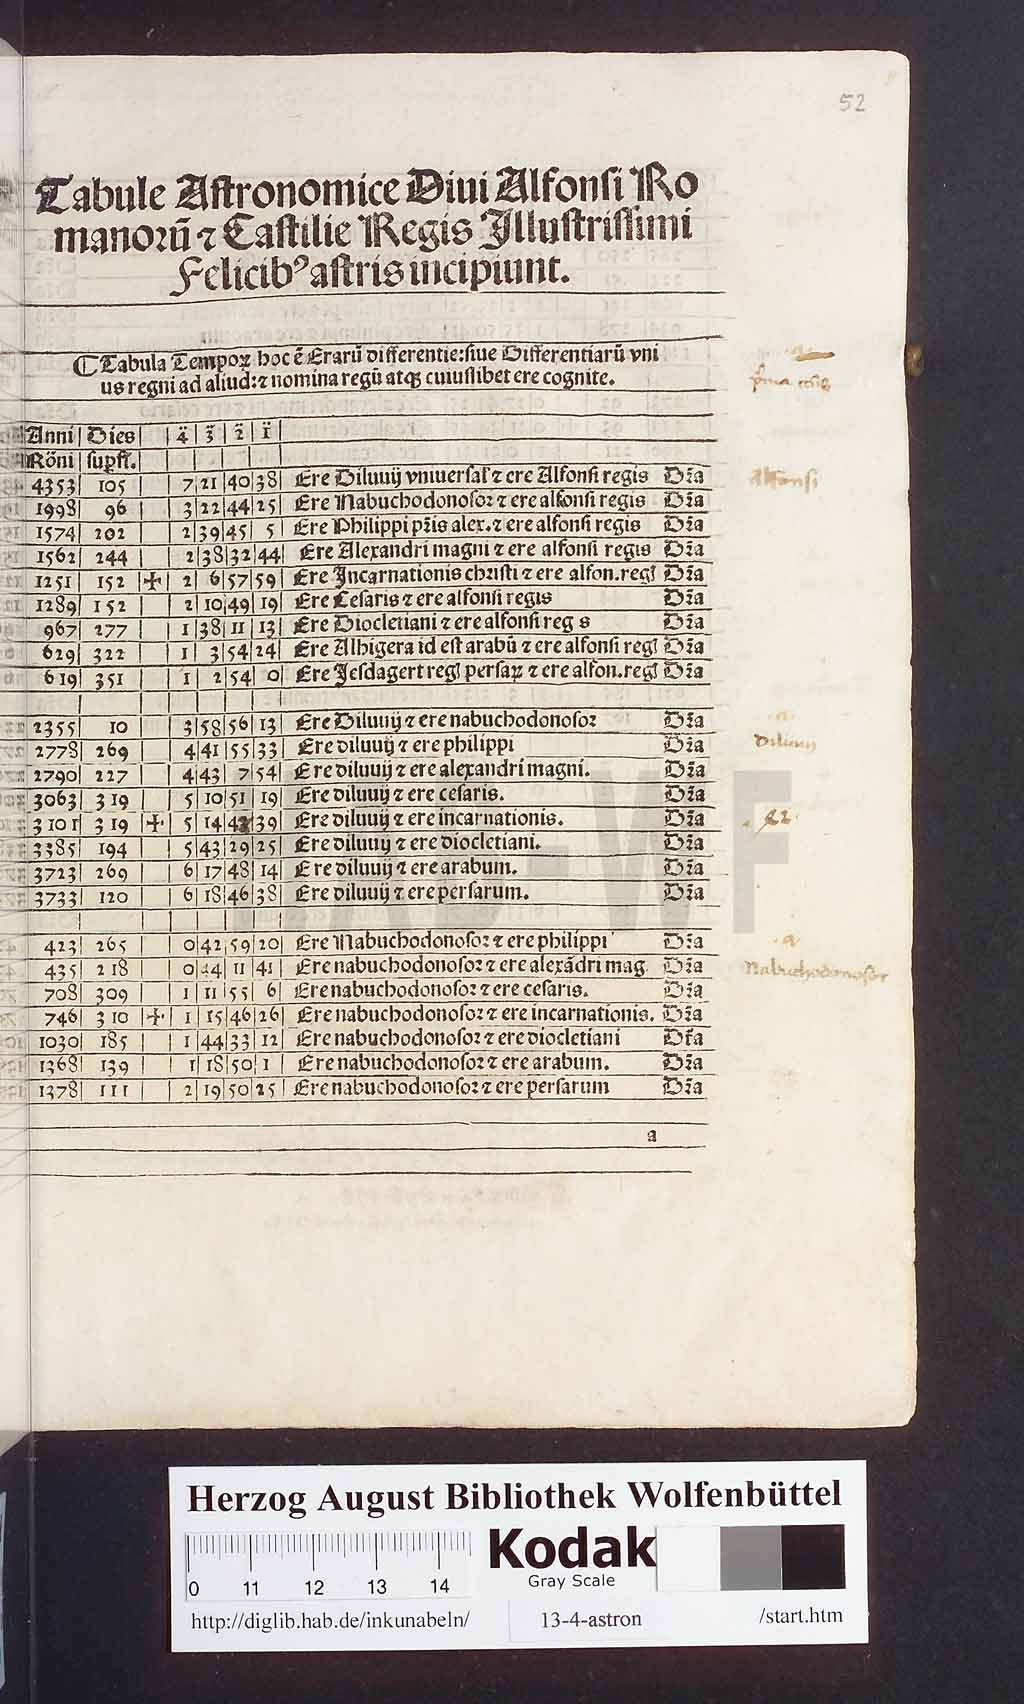 52
Tabule Astronomice Diui Alfonsi Ro
manorũ ⁊ Castilie Regis Illustrissimi
Felicibꝰ astris incipiunt.
Tabula Tempoꝝ hoc ē Erarũ differentie: siue Differentiarũ vni
us regni ad aliud: ⁊ nomina regũ atqꝫ cuiuslibet ere cognite.
Anni | Dies | | 4̈ | 3̈ | 2̈ | 1̈ |
Rōni | supfl. |
4353 | 105 | | 7 | 21 | 40 | 38 | Ere Diluuij vniuersal ⁊ ere Alfonsi regis Dr̄a
alfonsi
1998 | 96 | | 3 | 22 | 44 | 25 | Ere Nabuchodonosor ⁊ ere alfonsi regis Dr̄a
1574 | 202 | | 2 | 39 | 45 | 5 | Ere Philippi pr̄is alex. ⁊ ere alfonsi regis Dr̄a
1562 | 244 | | 2 | 38 | 32 | 44 | Ere Alexandri magni ⁊ ere alfonsi regis Dr̄a
1251 | 152 | + | 2 | 6 | 57 | 59 | Ere Incarnationis christi ⁊ ere alfon. regꝭ Dr̄a
1289 | 152 | | 2 | 10 | 49 | 19 | Ere Cesaris ⁊ ere alfonsi regis Dr̄a
967 | 277 | | 1 | 38 | 11 | 13 | Ere Diocletiani ⁊ ere alfonsi reg s Dr̄a
629 | 322 | | 1 | 3 | 54 | 24 | Ere Alhigera id est arabũ ⁊ ere alfonsi regꝭ Dr̄a
619 | 351 | | 1 | 2 | 54 | 0 | Ere Jesdagert regꝭ persaꝝ ⁊ ere alfon. regꝭ Dr̄a
2355 | 10 | | 3 | 58 | 56 | 13 | Ere Diluuij ⁊ ere nabuchodonosor Dr̄a
2778 | 269 | | 4 | 41 | 55 | 33 | Ere diluuij ⁊ ere philippi Dr̄a
diluuij
2790 | 227 | | 4 | 43 | 7 | 54 | Ere diluuij ⁊ ere alexandri magni. Dr̄a
3063 | 319 | | 5 | 10 | 51 | 19 | Ere diluuij ⁊ ere cesaris. Dr̄a
3101 | 319 | + | 5 | 14 | | 39 | Ere diluuij ⁊ ere incarnationis. Dr̄a
42
3385 | 194 | | 5 | 43 | 29 | 25 | Ere diluuij ⁊ ere diocletiani. Dr̄a
3723 | 269 | | 6 | 17 | 48 | 14 | Ere diluuij ⁊ ere arabum. Dr̄a
3733 | 120 | | 6 | 18 | 46 | 38 | Ere diluuij ⁊ ere persarum. Dr̄a
423 | 265 | | 0 | 42 | 59 | 20 | Ere Nabuchodonosor ⁊ ere philippi Dr̄a
435 | 218 | | 0 | 44 | 11 | 41 | Ere nabuchodonosor ⁊ ere alexādri mag Dr̄a
Nabuchodonosor
708 | 309 | | 1 | 11 | 55 | 6 | Ere nabuchodonosor ⁊ ere cesaris. Dr̄a
746 | 310 | + | 1 | 15 | 46 | 26 | Ere nabuchodonosor ⁊ ere incarnationis. Dr̄a
1030 | 185 | | 1 | 44 | 33 | 12 | Ere nabuchodonosor ⁊ ere diocletiani Dr̄a
1368 | 139 | | 1 | 18 | 50 | 1 | Ere nabuchodonosor ⁊ ere arabum. Dr̄a
1378 | 111 | | 2 | 19 | 50 | 25 | Ere nabuchodonosor ⁊ ere persarum Dr̄a
a
HAB-WF
Herzog August Bibliothek Wolfenbüttel
0 11 12 13 14
Kodak
Gray Scale
http://diglib.hab.de/inkunabeln/ 13-4-astron /start.htm